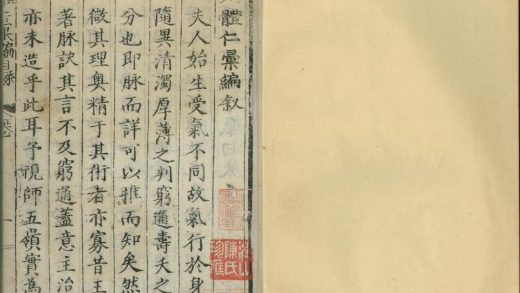 體仁彙編叙
夫人始生受氣不同故氣行於身
隨異清濁厚薄之判窮通壽夭之
分也即脉而詳可以推而知矣然
微其理奥精于其術者亦寡昔王
著脉訣其言不及窮通蓋意主治
亦未造乎此耳予視師五嶺實為
彙編目錄